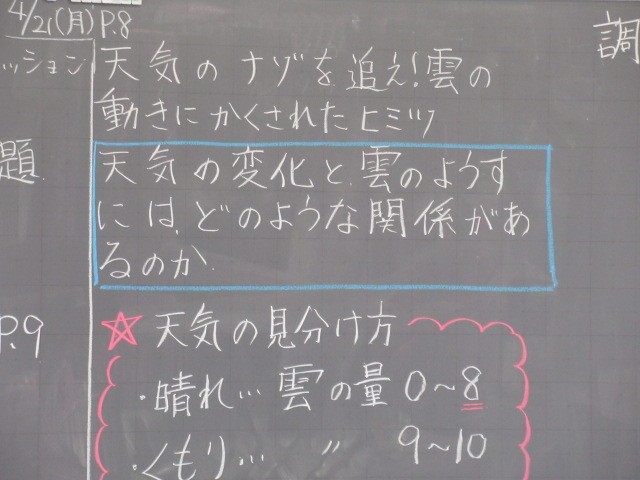 4/21(月)P.8
ッション
題
P.9
天気のナゾを追え!雲の
動きにかくされたヒミツ
天気の変化と雲のようす
には、どのような関係があ
るのか
☆天気の見分け方
・晴れ…雲の量 0~8
・くもり… 〃 9~10
調